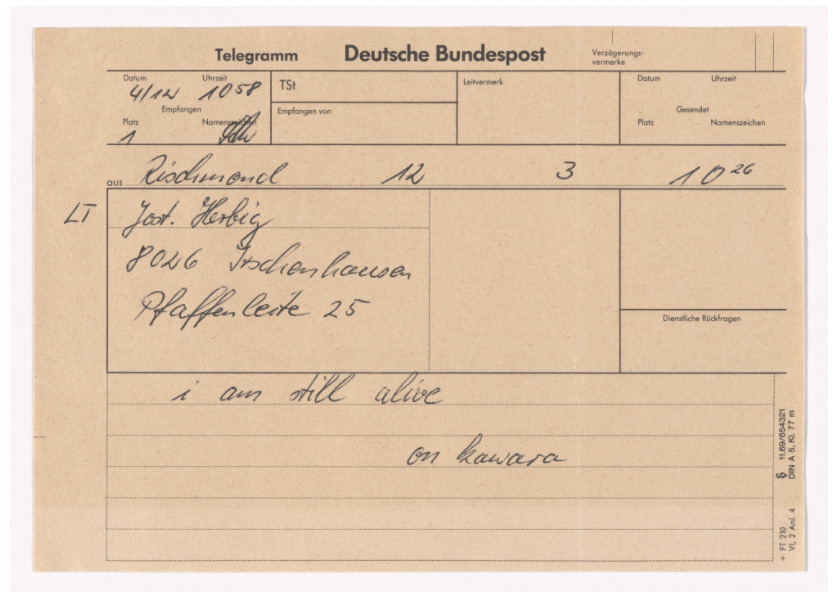 Telegramm Deutsche Bundespost Verzögerungs-
vermerke
Datum Uhrzeit TSt Leitvermerk Datum Uhrzeit
4/12 1058
Empfangen Empfangen von Gesendet
Platz Namenszeichen Platz Namenszeichen
1
aus Rischmond 12 3 10 26
LT Jost. Herbig
8026 Irschenhausen
Pfaffenleite 25
Dienstliche Rückfragen
i am still alive
on kawara
§ 11.69/654321
DIN A 5, Kl. 77 m
+ FT 210
VI, 2 Anl. 4